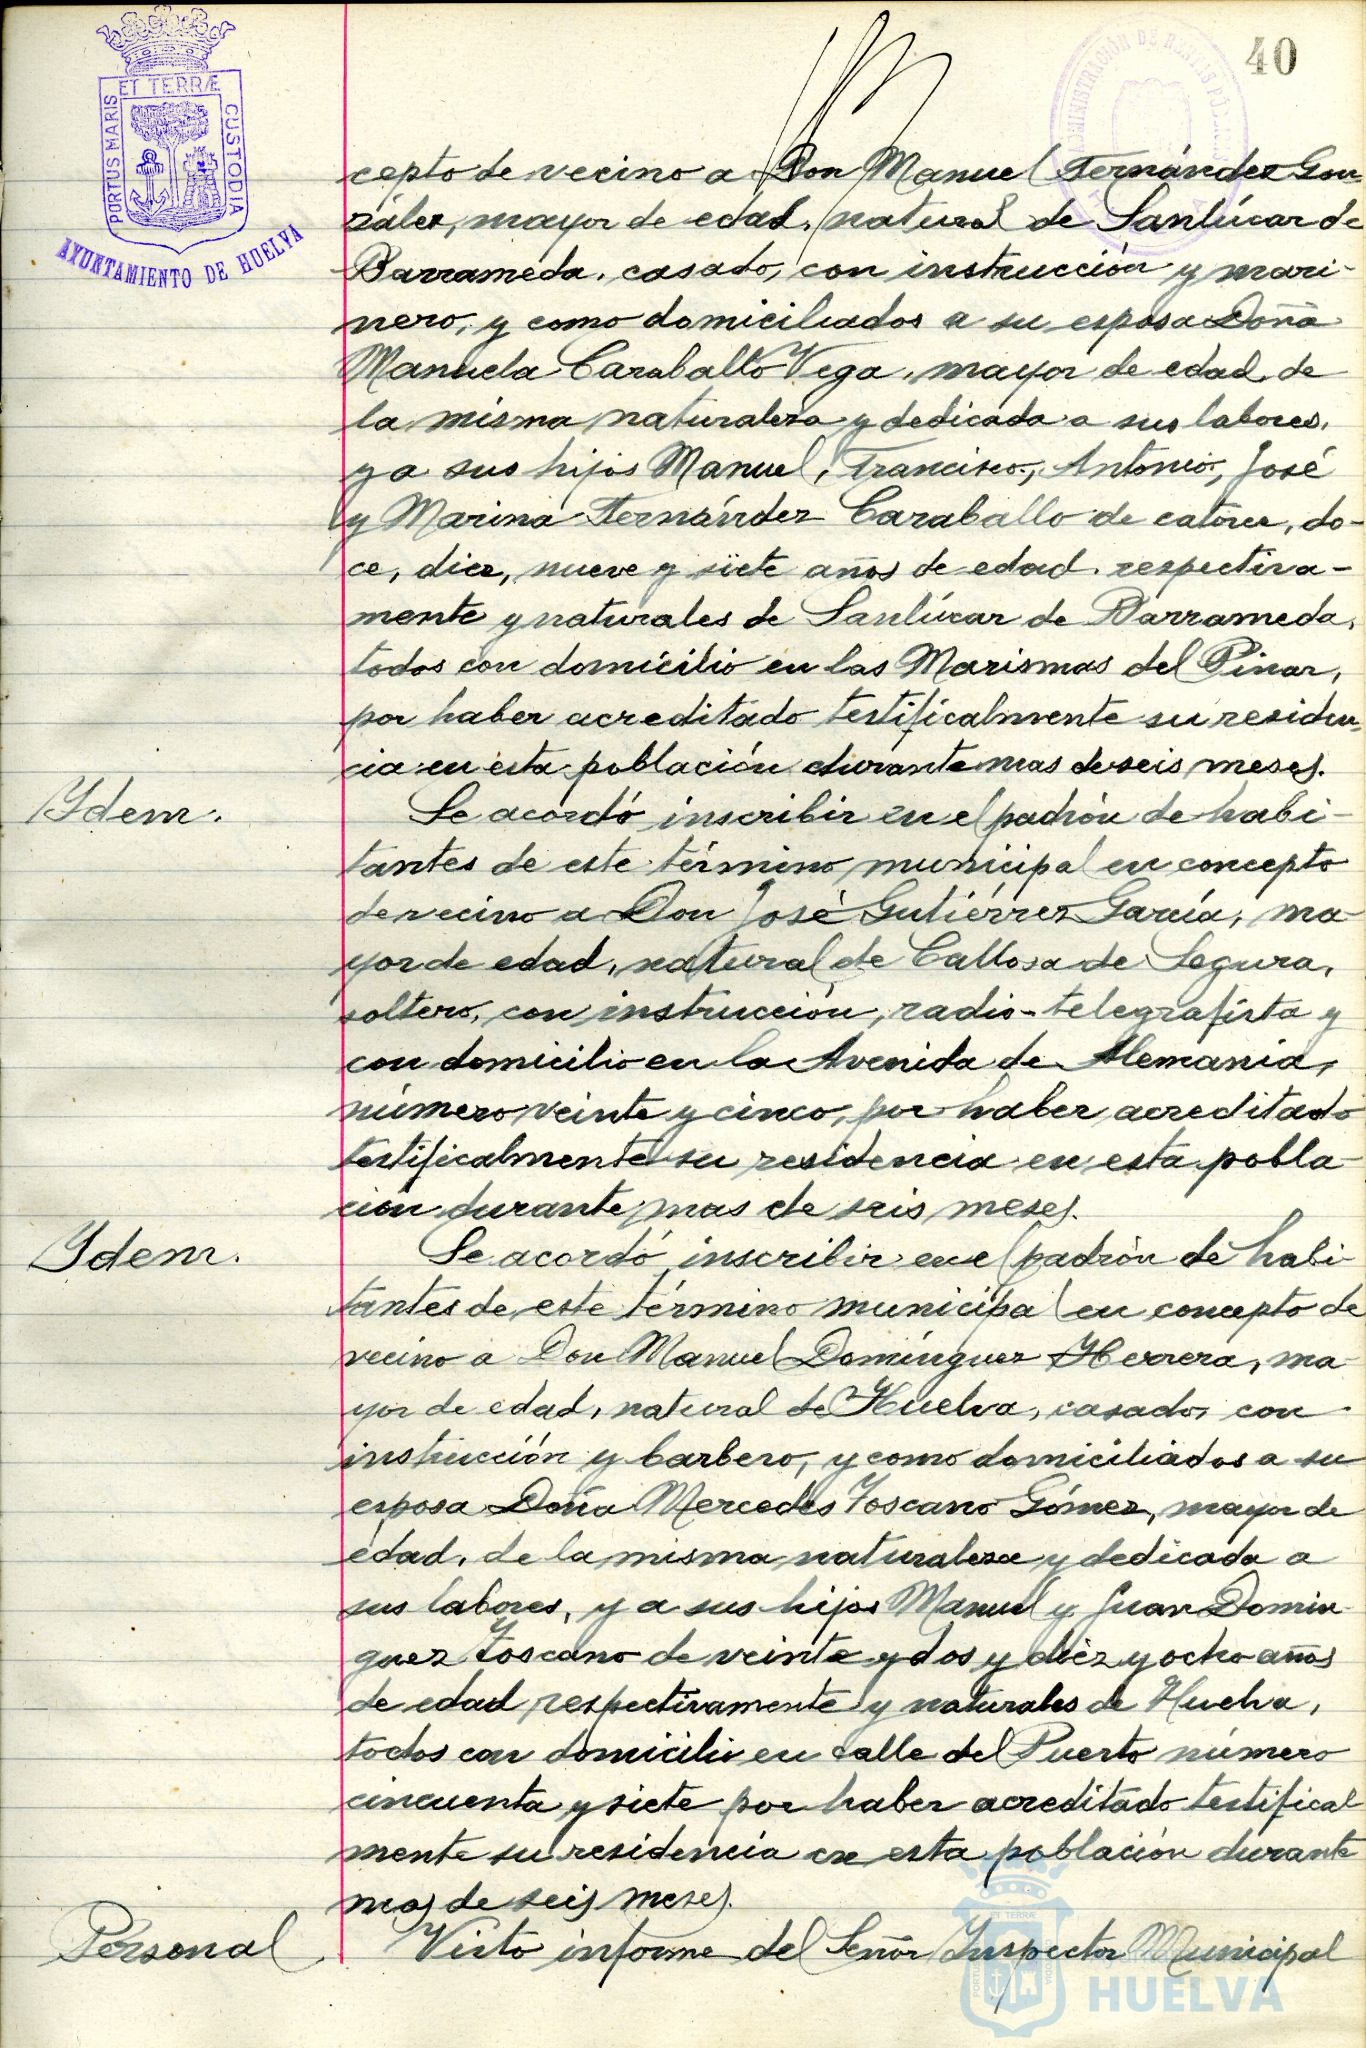 ET TERRÆ
PORTUS MARIS
CUSTODIA
AYUNTAMIENTO DE HUELVA
ADMINISTRACIÓN DE RENTAS PÚBLICAS
40
cepto de vecino a Don Manuel Fernández Gon-
zález, mayor de edad, natural de Sanlúcar de
Barrameda, casado, con instrucción y mari-
nero, y como domiciliados a su esposa Doña
Manuela Caraballo Vega, mayor de edad, de
la misma naturaleza y dedicada a sus labores,
y a sus hijos Manuel, Francisco, Antonio, José
y Marina Fernández Caraballo de catorce, do-
ce, diez, nueve y siete años de edad respectiva-
mente y naturales de Sanlúcar de Barrameda,
todos con domicilio en las Marismas del Pinar,
por haber acreditado testificalmente su residen-
cia en esta población durante mas de seis meses.
Ydem. Se acordó inscribir en el padrón de habi-
tantes de este término municipal en concepto
de vecino a Don José Gutiérrez García, ma
yor de edad, natural de Callosa de Segura,
soltero, con instrucción, radio-telegrafista y
con domicilio en la Avenida de Alemania,
número veinte y cinco, por haber acreditado
testificalmente su residencia en esta pobla-
ción durante mas de seis meses.
Ydem. Se acordó inscribir en el padrón de habi
tantes de este término municipal en concepto de
vecino a Don Manuel Domínguez Herrera, ma
yor de edad, natural de Huelva, casado, con
instrucción y barbero, y como domiciliados a su
esposa Doña Mercedes Toscano Gómez, mayor de
edad, de la misma naturaleza y dedicada a
sus labores, y a sus hijos Manuel y Juan Domin
guez Toscano de veinte y dos y diez y ocho años
de edad respectivamente y naturales de Huelva,
todos con domicilio en calle del Puerto número
cincuenta y siete por haber acreditado testifical
mente su residencia en esta población durante
mas de seis meses.
Personal Visto informe del Señor Inspector Municipal
HUELVA